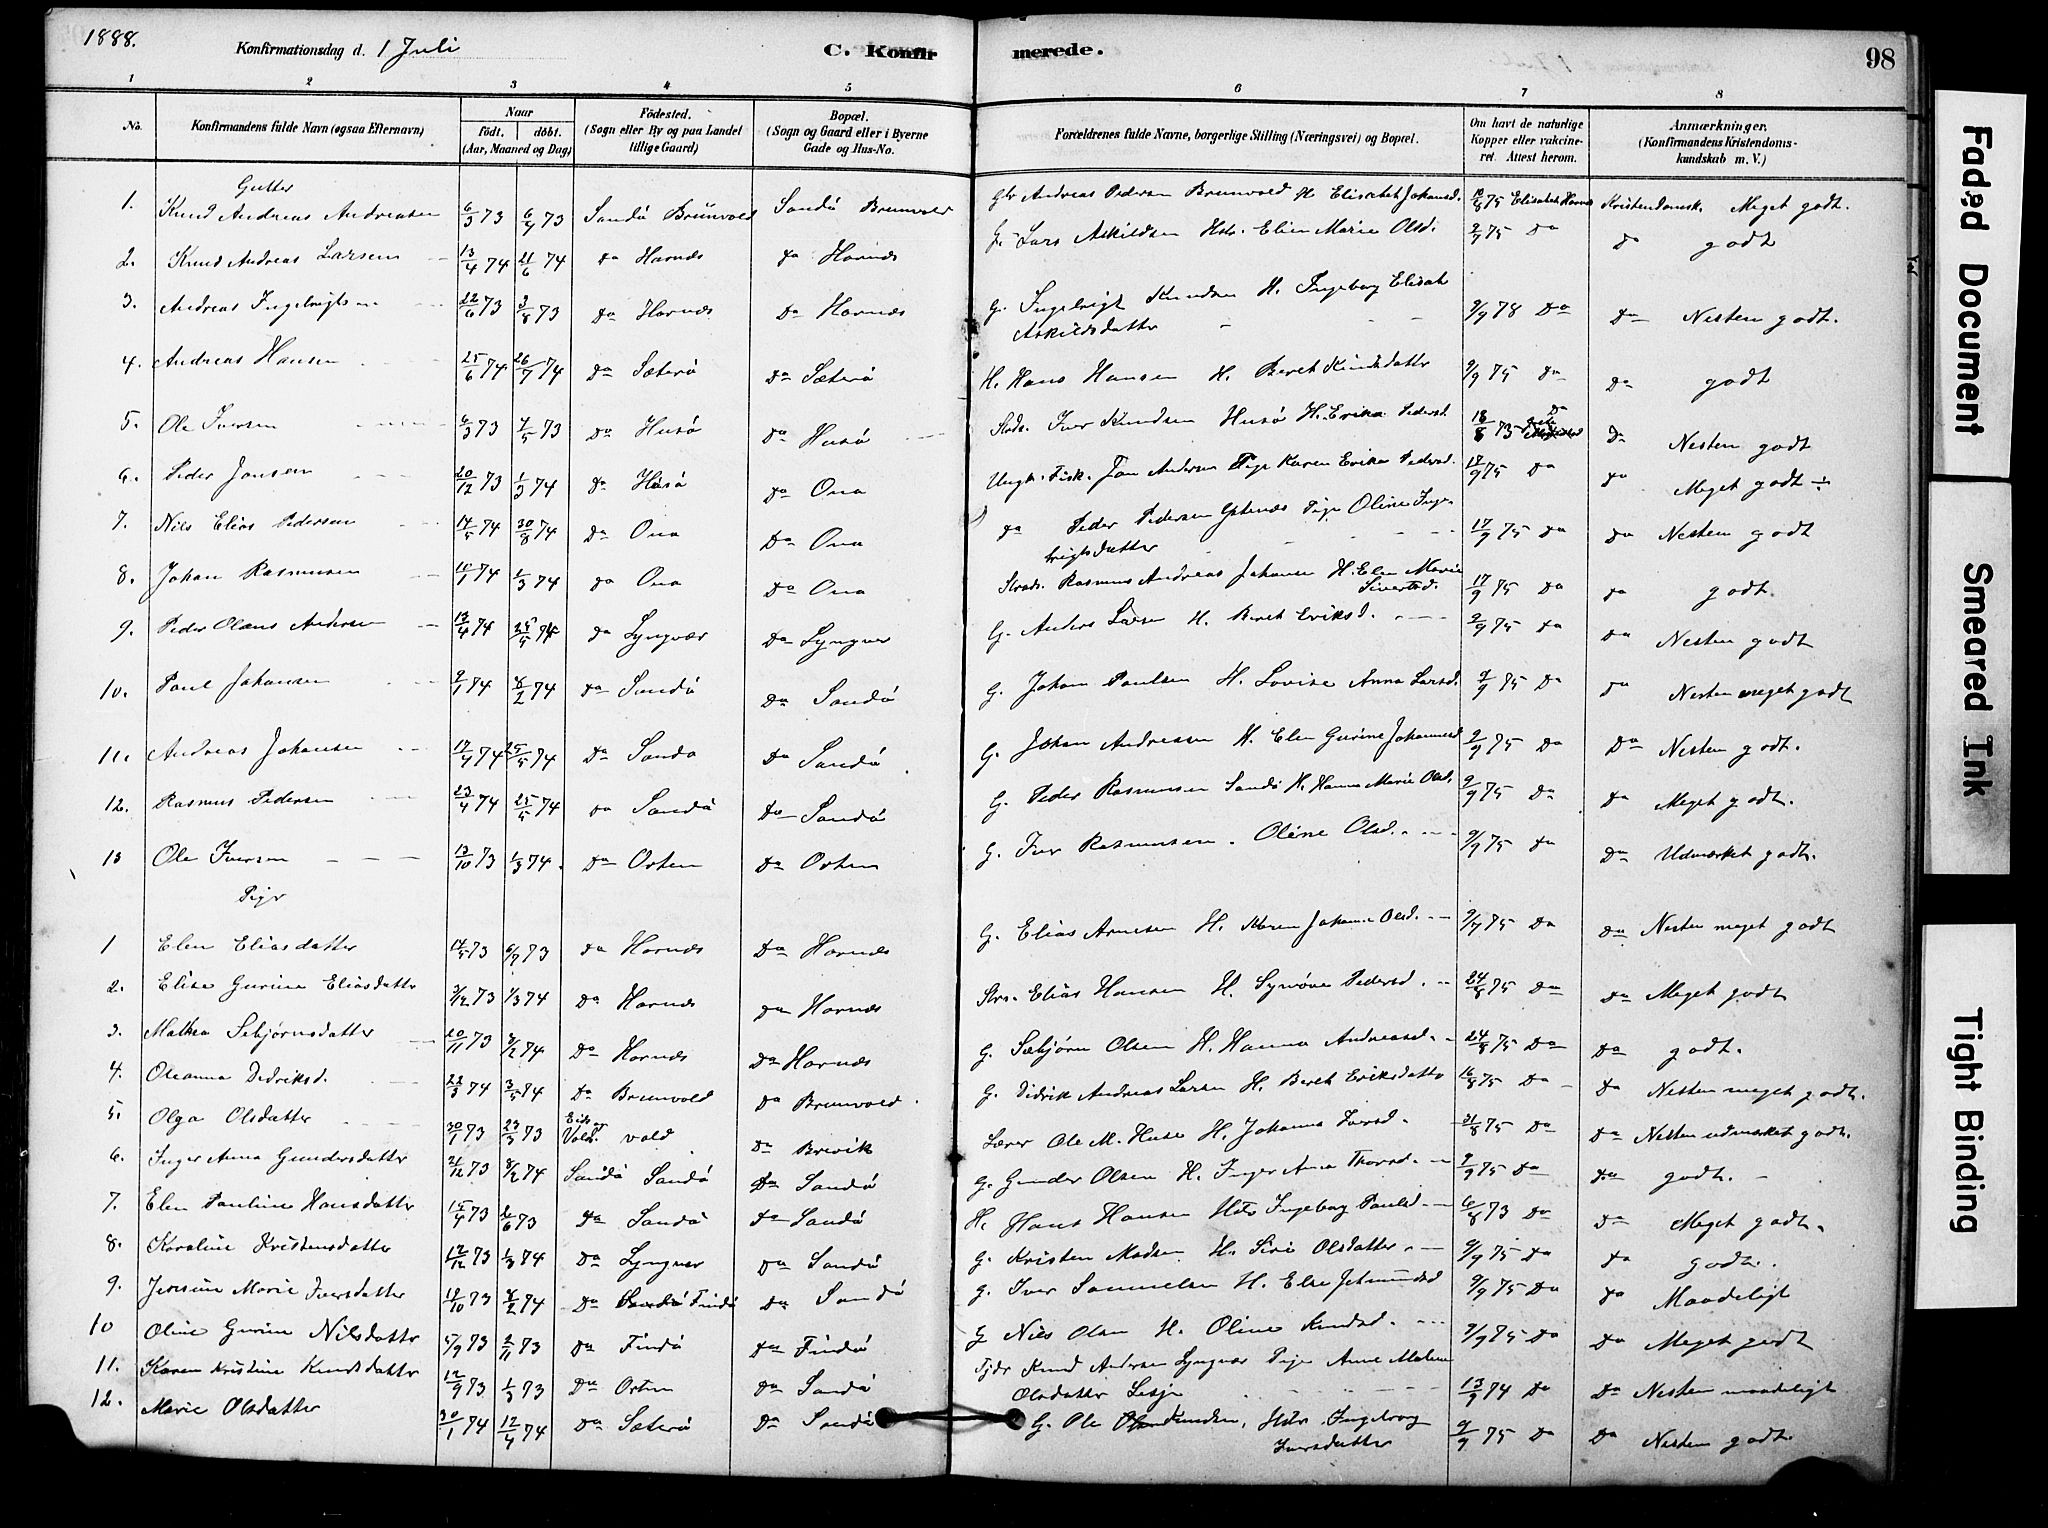 1888. Konfirmationsdag d. 1 Juli C. Konfirmerede. 98
1 2 3 4 5 6 7 8
No. Konfirmandens fulde Navn (ogsaa Efternavn) Naar födt. döbt. (Aar, Maaned og Dag) Födested. (Sogn eller By og paa Landet tillige Gaard) Bopæl. (Sogn og Gaard eller i Byerne Gade og Hus-No. Forældrenes fulde Navne, borgerlige Stilling (Næringsvei) og Bopæl. Om havt de naturlige Kopper eller vakcineret. Attest herom. Anmærkninger. (Konfirmandens Kristendomskundskab m. V.)
Gutter
1. Knud Andreas Andreasen 6/3 73 6/4 73 Sandö Brunvold Sandö Brunvold Gbr Andreas Pedersen Brunvold H Elisabet Johansd. 75 Elisabeth Hornes Kristendomsk. Meget godt.
2. Knud Andreas Larsen 13/4 74 21/6 74 Do Harnæs Do Harnæs G. Lars Askildsen Hstr. Elien Marie Olsd. 2/9 75 Do Do godt
3. Andreas Ingebrigtsen 22/6 73 3/8 73 Do Harnæs Do Harnæs G. Ingebrigt Knudsen H. Ingeborg Elisab Askildsdatter 9/9 78 Do Do Nesten godt.
4. Andreas Hansen 25/6 74 26/7 74 Do Sæterö Do Sæterö H. Hans Hansen H. Beret Knudsdatter 9/9 75 Do Do godt
5. Ole Iversen 6/3 73 4/5 73 Do Husö Do Husö Strds. Iver Knudsen Husö H. Erika Pedersd. 18/8 75 Do Do Nesten godt
6. Peder Jonsen 20/12 73 1/3 74 Do Husö Do Ona Ungk. Fisk. Jon Andersen Pige Karen Erika Pedersd. 17/9 75 Do Do Meget godt ÷
7. Nils Elias Pedersen 14/5 74 30/8 74 Do Ona Do Ona Do Peder Pedersen Pige Oline Ingebrigtsdatter 17/9 75 Do Do Nesten godt
8. Johan Rasmusen 10/1 74 1/3 74 Do Ona Do Ona Strds. Rasmus Andreas Johansen H. Elen Marie Sivertsd. 17/9 75 Do Do godt.
9. Peder Olaus Andersen 13/4 74 25/5 74 Do Lyngvær Do Lyngver G. Anders Larsen H. Beret Eriksd. 9/9 75 Do Do Nesten godt
10. Paul Johansen 9/1 74 8/2 74 Do Sandö Do Sandö G. Johan Paulsen H. Lovise Anna Larsd. 9/9 75 Do Do Nesten meget godt
11. Andreas Johansen 17/4 74 25/5 74 Do Sando Do Sandö G. Johan Andreasen H. Elen Gurine Johannesd 9/9 75 Do Do Nesten godt.
12. Rasmus Pedersen 23/4 74 25/5 74 Do Sandö Do Sandö G. Peder Rasmusen Sandö H. Hanna Marie Olsd. 9/9 75 Do Do Meget godt.
13 Ole Iversen 13/10 73 1/3 74. Do Orten Do Orten G. Iver Rasmusen. Oline Olsd. 9/9 75 Do Do Udmærket godt.
Piger
1 Elen Eliasdatter 14/5 73 6/7 73 Do Harnæs Do Harnæs G. Elias Arnesen H. Karen Johanna Olsd. 9/9 75 Do Do Nesten meget godt
2. Elise Gurine Eliasdatter 3/12 73 1/3 74 Do Harnæs Do Harnæs Strs. Elias Hansen H. Synöve Pedersd. 24/8 75 Do Do Meget godt
3. Mathea Sebjörnsdatter 20/11 73 8/2 74 Do Harnæs Do Harnæs G. Sæbjörn Olsen H. Hanna Andreasd. 24/8 75 Do Do godt.
4. Oleanna Didriksd. 22/3 74 3/5 74 Do Brunvold Do Brunvold. G. Didrik Andreas Larsen H. Beret Eriksdatter 16/8 75 Do Do Nesten meget godt.
5. Olga Olsdatter 30/1 73 23/3 73 Eids og Vold. vold Do Brevik Lærer Ole M. Huse H. Johanna Iversd. 31/8 75 Do Do Nesten udmærket godt.
6. Inger Anna Gundersdatter 21/12 73 8/2 74 Sandö Sandö Do Sandö G. Gunder Olsen H. Inger Anna Thorsd. 9/9 75 Do Do godt.
7. Elen Pauline Hansdatter 15/4 73 2/6 73 Do Sandö Do Sandö H. Hans Hansen Hstr Ingeborg Paulsd. 6/8 73 Do Do Meget godt.
8. Karoline Kristensdatter 12/12 73 1/3 74 Do Lyngver Do Sandö G. Kristen Madsen H. Siri Olsdatter. 9/9 75 Do Do godt.
9. Jensine Marie Iversdatter 19/10 73 8/2 74 Do Findö Do Sandö G. Iver Samuelsen H. Else Jetmundsd 9/9 75 Do Do Maadeligt
10 Oline Gurine Nilsdatter 5/9 73 2/11 73 Do Findö Do Findö G Nils Olsen H. Oline Knudsd. 9/9 75 Do Do Meget godt
11. Karen Kristine Knudsdatter 12/9 73 1/3 73 Do Orten Do Sandö Fjdr Knud Andersen Lyngvær Pige Anne Malene Olsdatter Lesje 13/9 74 Do Do Nesten maadeligt
12. Marie Olsdatter 30/1 74 12/4 74 Do Sæterö Do Sandö G. Ole Knudsen, Hstr Ingeborg Iversdatter 9/9 75 Do Do Nesten godt.
Faded Document
Smeared Ink
Tight Binding